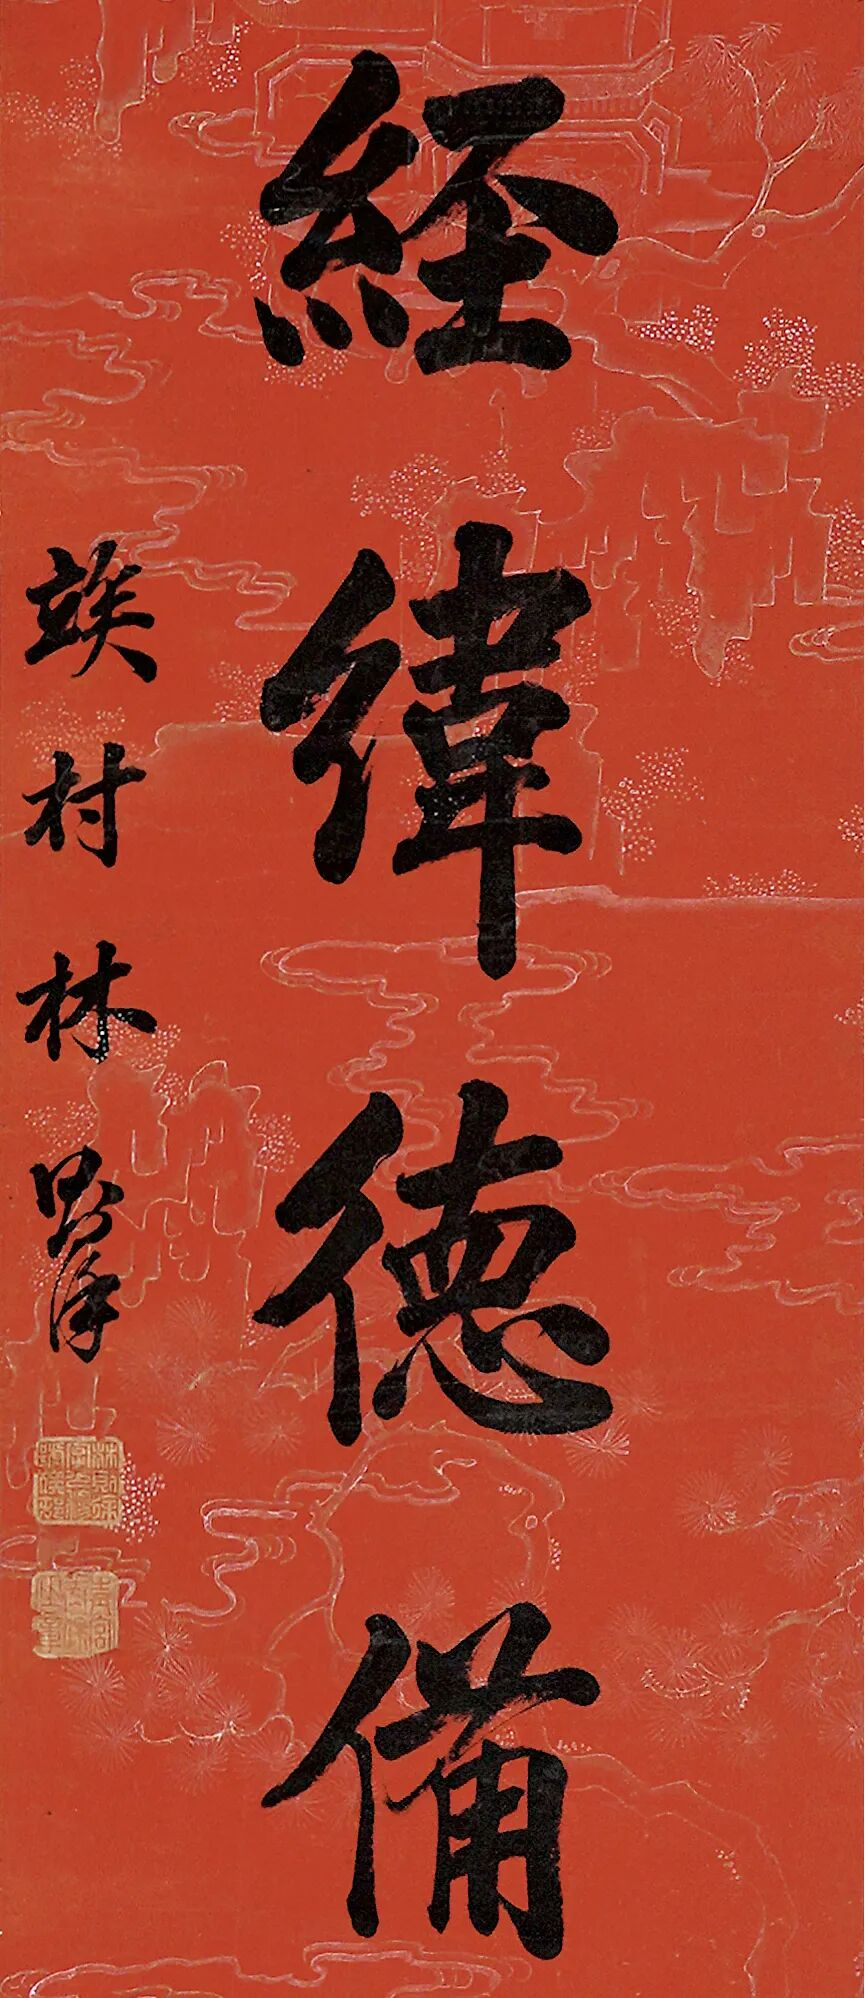 經緯德備
竢村林則徐